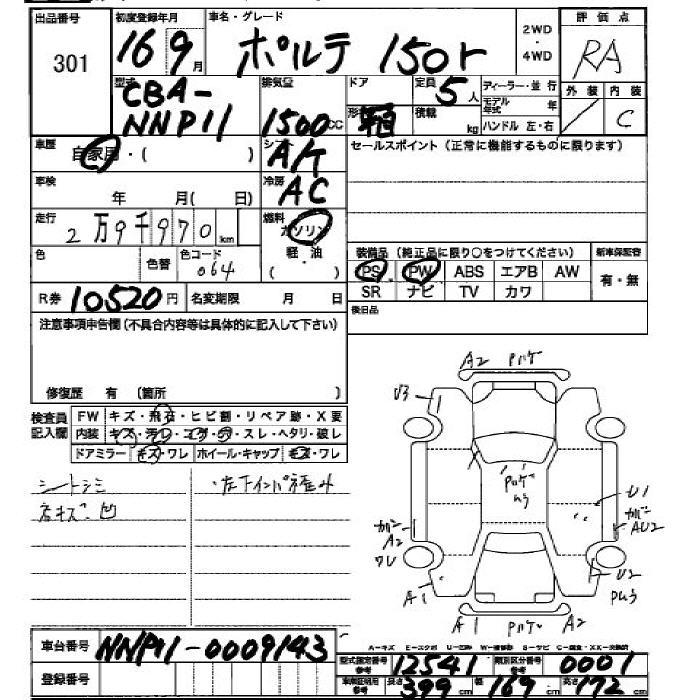 出品番号 初度登録年月 車名・グレード 評価点
301 16 9月 ポルテ 150r 2WD・4WD RA
型式 排気量 ドア 定員 5人 ディーラー・並行 外装 内装
CBA-NNP11 1500CC 積載 kg モデル年式 年 ハンドル 左・右 C
車歴 自家用・( ) シフト A/K セールスポイント(正常に機能するものに限ります)
車検 年 月(日) 冷房 AC
走行 2万9千970km 燃料 ガソリン
軽・油
( )
色 色替 色コード 064 装備品(純正品に限り○をつけてください) 新車保証書
PS PW ABS エアB AW 有・無
R券 10520円 名変期限 月 日 SR ナビ TV カワ
後日品
注意事項申告欄(不具合内容等は具体的に記入して下さい)
修復歴 有 (箇所 )
検査員記入欄 FW キズ・飛石・ヒビ割・リペア跡・X要
内装 キズ・ヨゴレ・コゲ・穴・スレ・ヘタリ・破レ
ドアミラー キズ・ワレ ホイール・キャップ キズ・ワレ
シートシミ ・左下インパ歪み
右キズ・凹
A2 ハゲ
U3
ハゲ
U1
カバーA2
カバーAU2
ワレ
U2
A1
A1 ハゲ A2
A-キズ E-エクボ U-凹 W-補修跡 S-サビ C-腐食
車台番号 NNP11-0009143
登録番号
型式指定番号 参考 12541 類別区分番号 参考 0001
車庫証明用 参考 長さ 399cm 幅 169cm 高さ 172cm